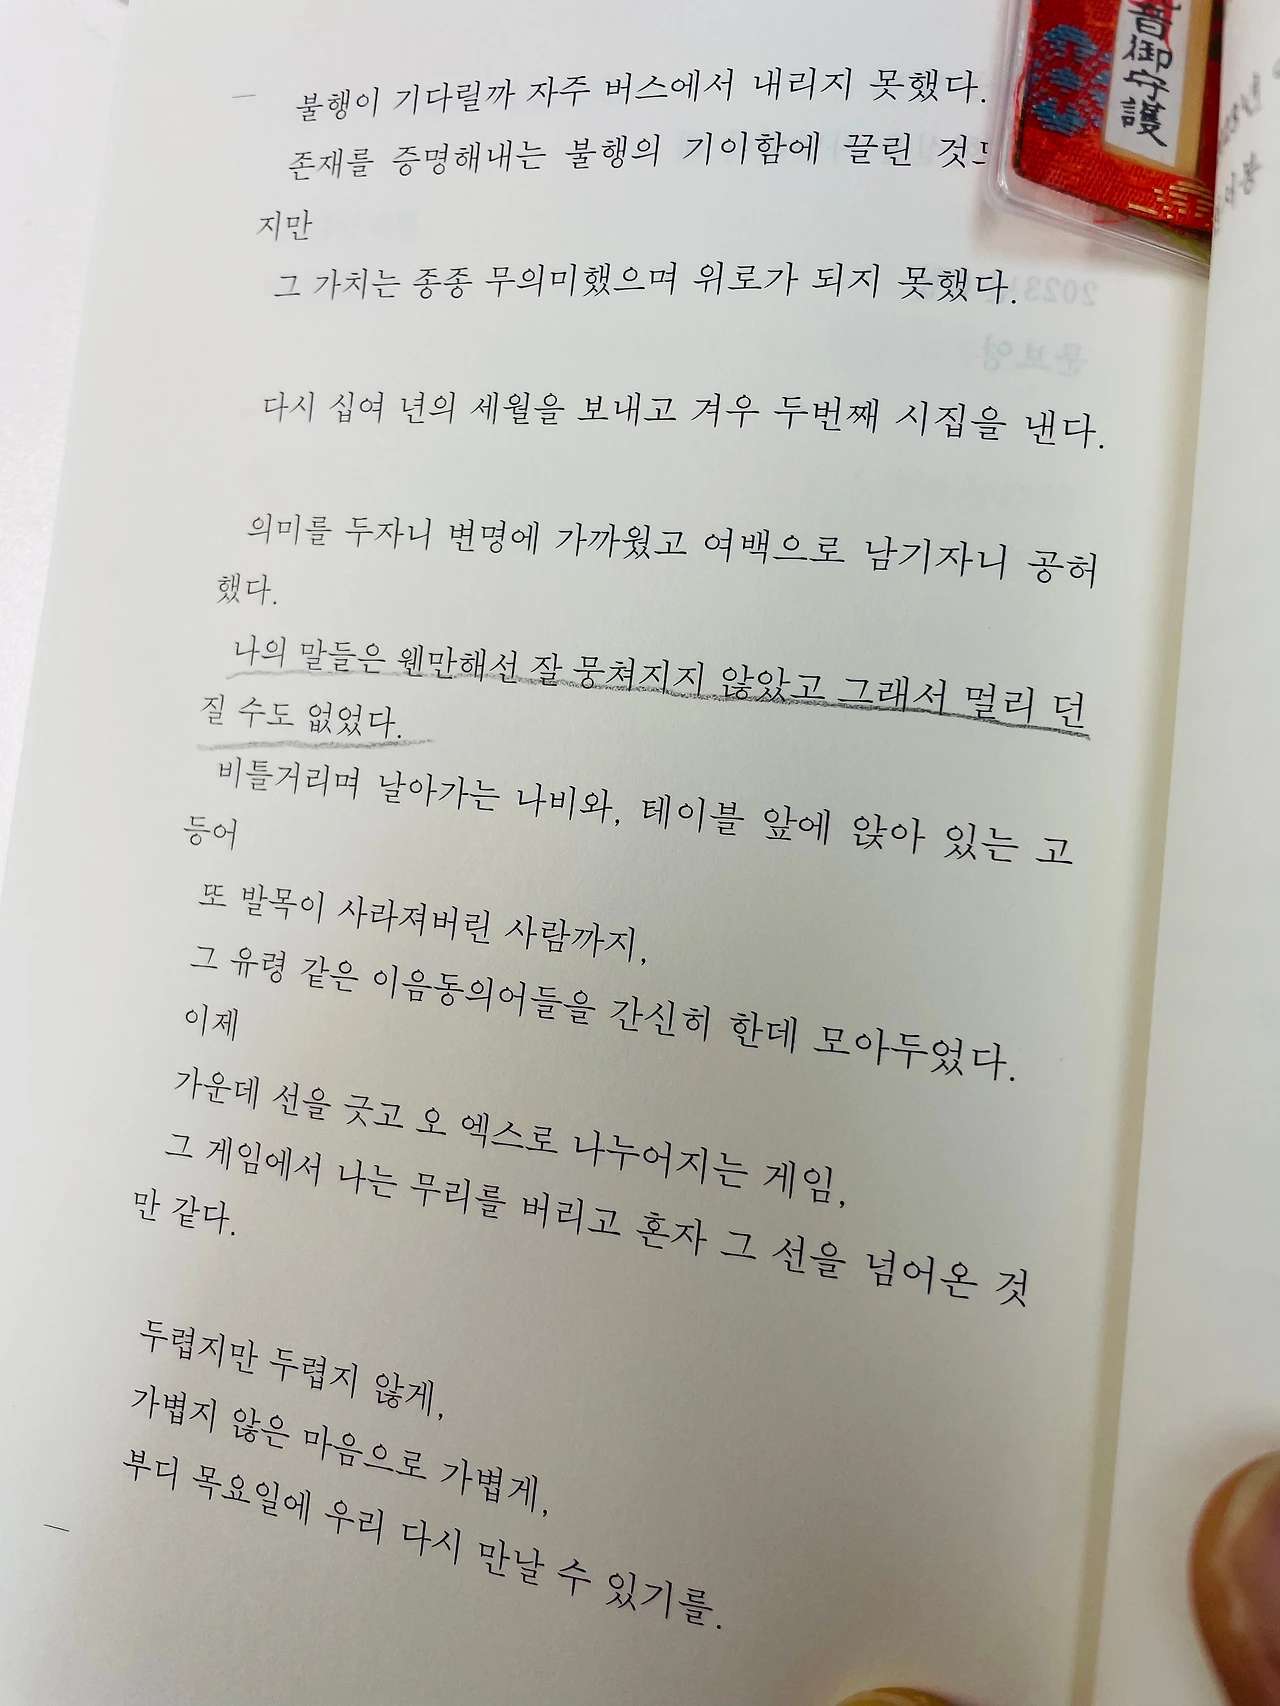 불행이 기다릴까 자주 버스에서 내리지 못했다.
존재를 증명해내는 불행의 기이함에 끌린
지만
그 가치는 종종 무의미했으며 위로가 되지 못했다.
다시 십여 년의 세월을 보내고 겨우 두번째 시집을 낸다.
의미를 두자니 변명에 가까웠고 여백으로 남기자니 공허
했다.
나의 말들은 웬만해선 잘 뭉쳐지지 않았고 그래서 멀리 던
질 수도 없었다.
비틀거리며 날아가는 나비와, 테이블 앞에 앉아 있는 고
등어
또 발목이 사라져버린 사람까지,
그 유령 같은 이음동의어들을 간신히 한데 모아두었다.
이제
가운데 선을 긋고 오 엑스로 나누어지는 게임,
그 게임에서 나는 무리를 버리고 혼자 그 선을 넘어온 것
만 같다.
두렵지만 두렵지 않게,
가볍지 않은 마음으로 가볍게,
부디 목요일에 우리 다시 만날 수 있기를.
音御守護
2023년
문보영